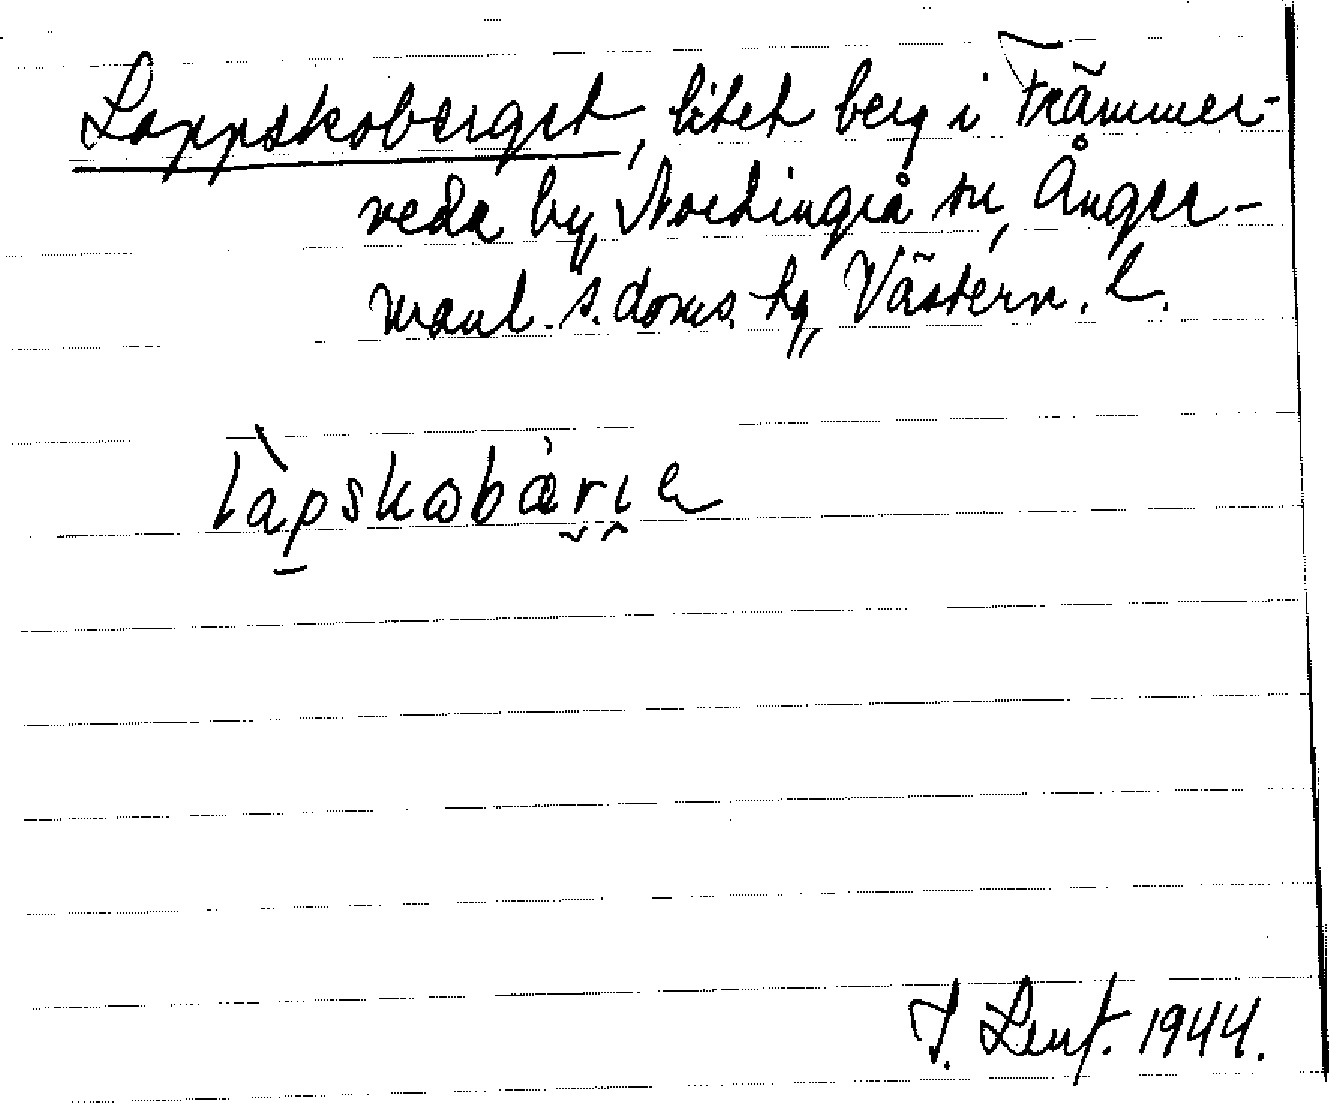 Lappskoberget, litet berg i Främmer-
veda by, Nordingrå sn, Ånger-
manl. s. doms. hg, Västern. l.
làpskωbàrıe
J. Lenf. 1944.